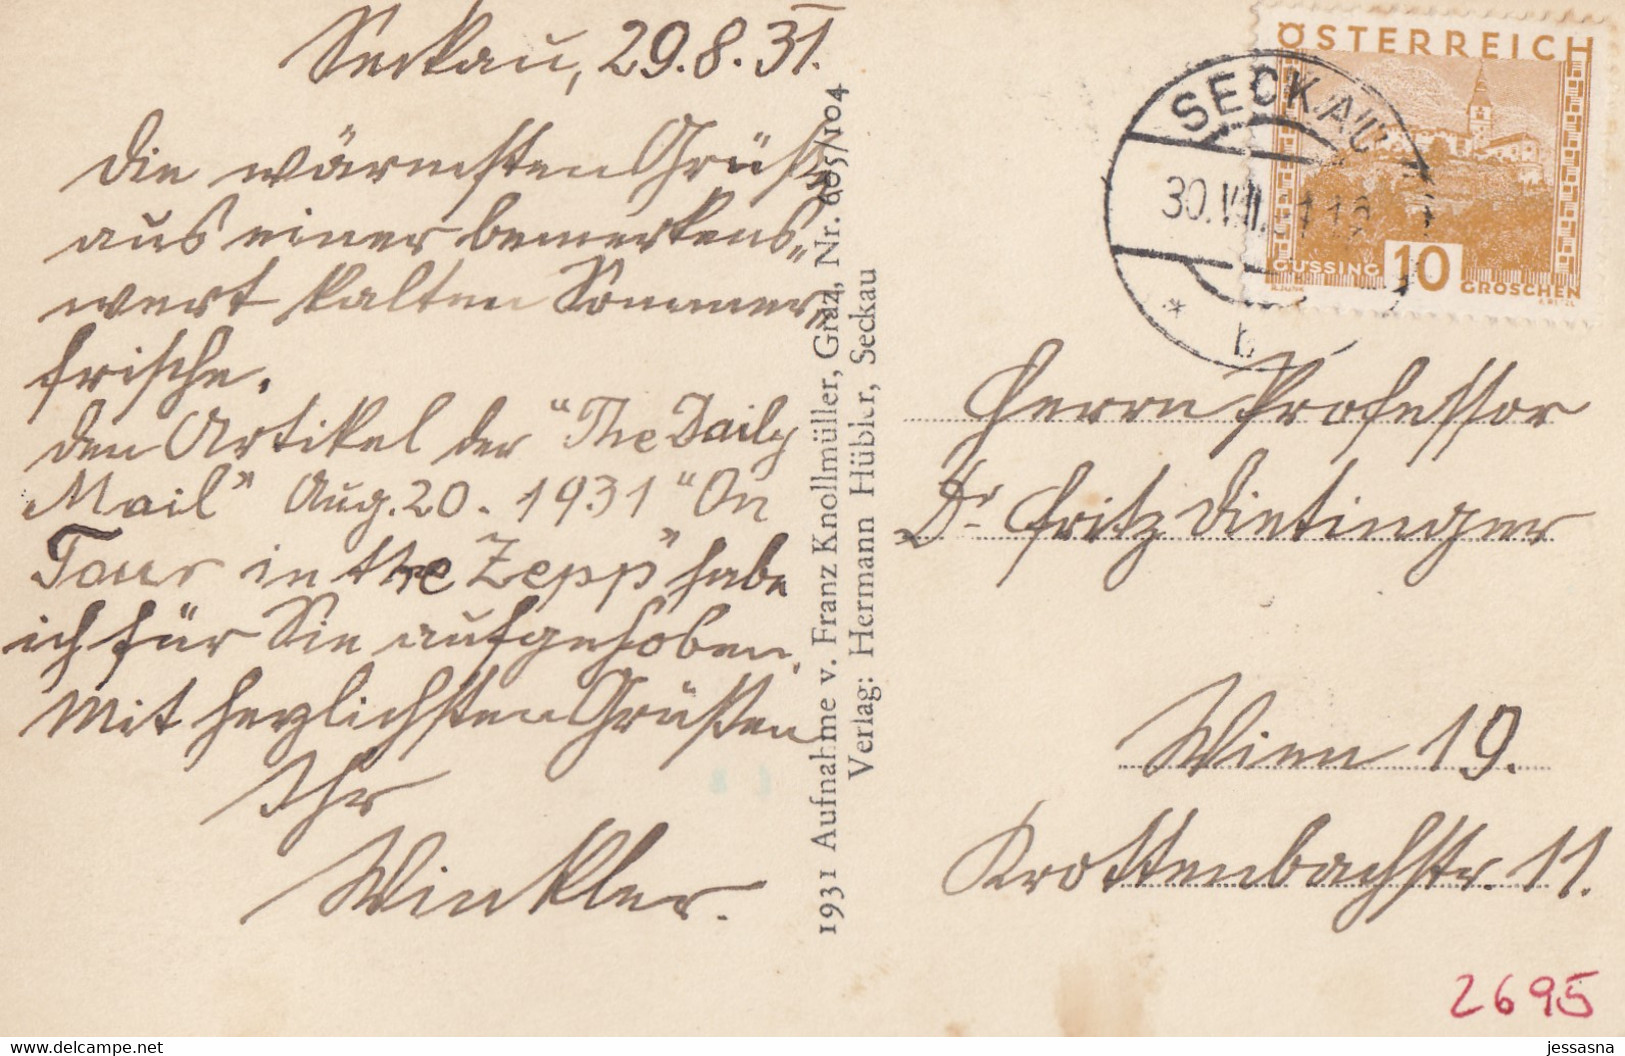 Seckau, 29.8.31.
Die wärmsten Grüße
aus einer bemerkens„
wert kalten Sommer„
frische.
Den Artikel der "The Daily
Mail" Aug. 20. 1931 "On
Tour in the Zepp" habe
ich für Sie aufgehoben.
Mit herzlichsten Grüßen
Ihr
Winkler.
1931 Aufnahme v. Franz Knollmüller, Graz, Nr. 605/104
Verlag: Hermann Hübler, Seckau
ÖSTERREICH
GÜSSING 10 GROSCHEN
SECKAU
30.VIII.31
* b
Herrn Professor
Dr. Fritz Dietinger
Wien 19.
Krottenbachstr. 11.
2695
www.delcampe.net
jessasna